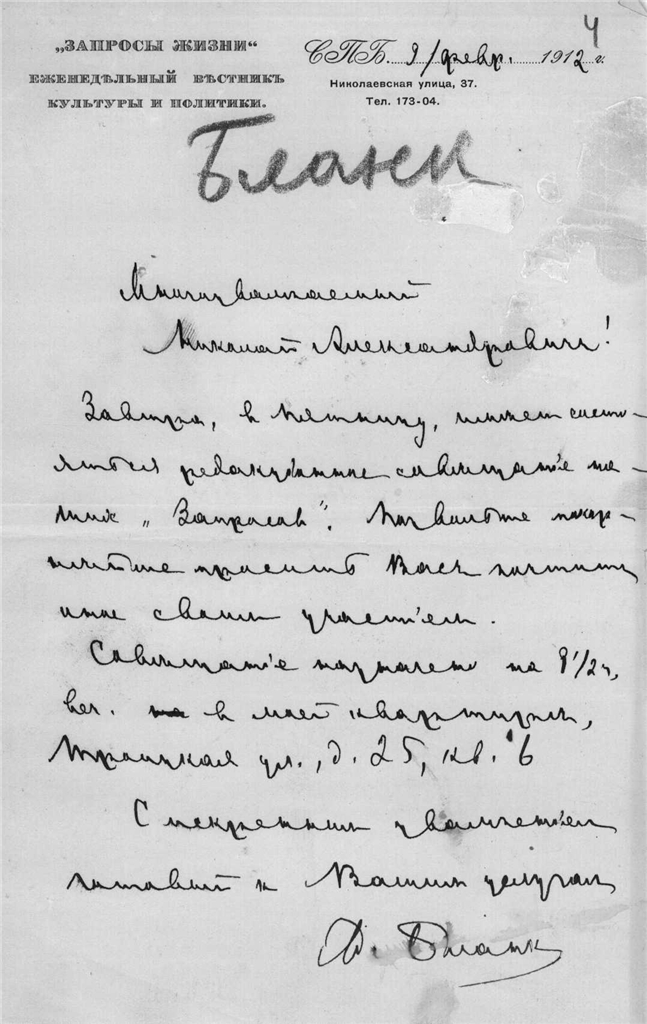 4
„ЗАПРОСЫ ЖИЗНИ“
ЕЖЕНЕДѢЛЬНЫЙ ВѢСТНИКЪ
КУЛЬТУРЫ И ПОЛИТИКИ.
СПБ. 9/февр. 1912 г.
Николаевская улица, 37.
Тел. 173-04.
Бланк
Многоуважаемый
Николай Александрович!
Завтра, в пятницу, имеет состо-
яться редакціонное совещаніе на-
ших „Запросов“. Позвольте покор-
нейше просить Вас почтить
оное своим участіем.
Совещаніе назначено на 8 1/2 ч.
веч. в моей квартире,
Троицкая ул., д. 25, кв. 6
С искренним уваженіем
готовый к Вашим услугам
Бланк